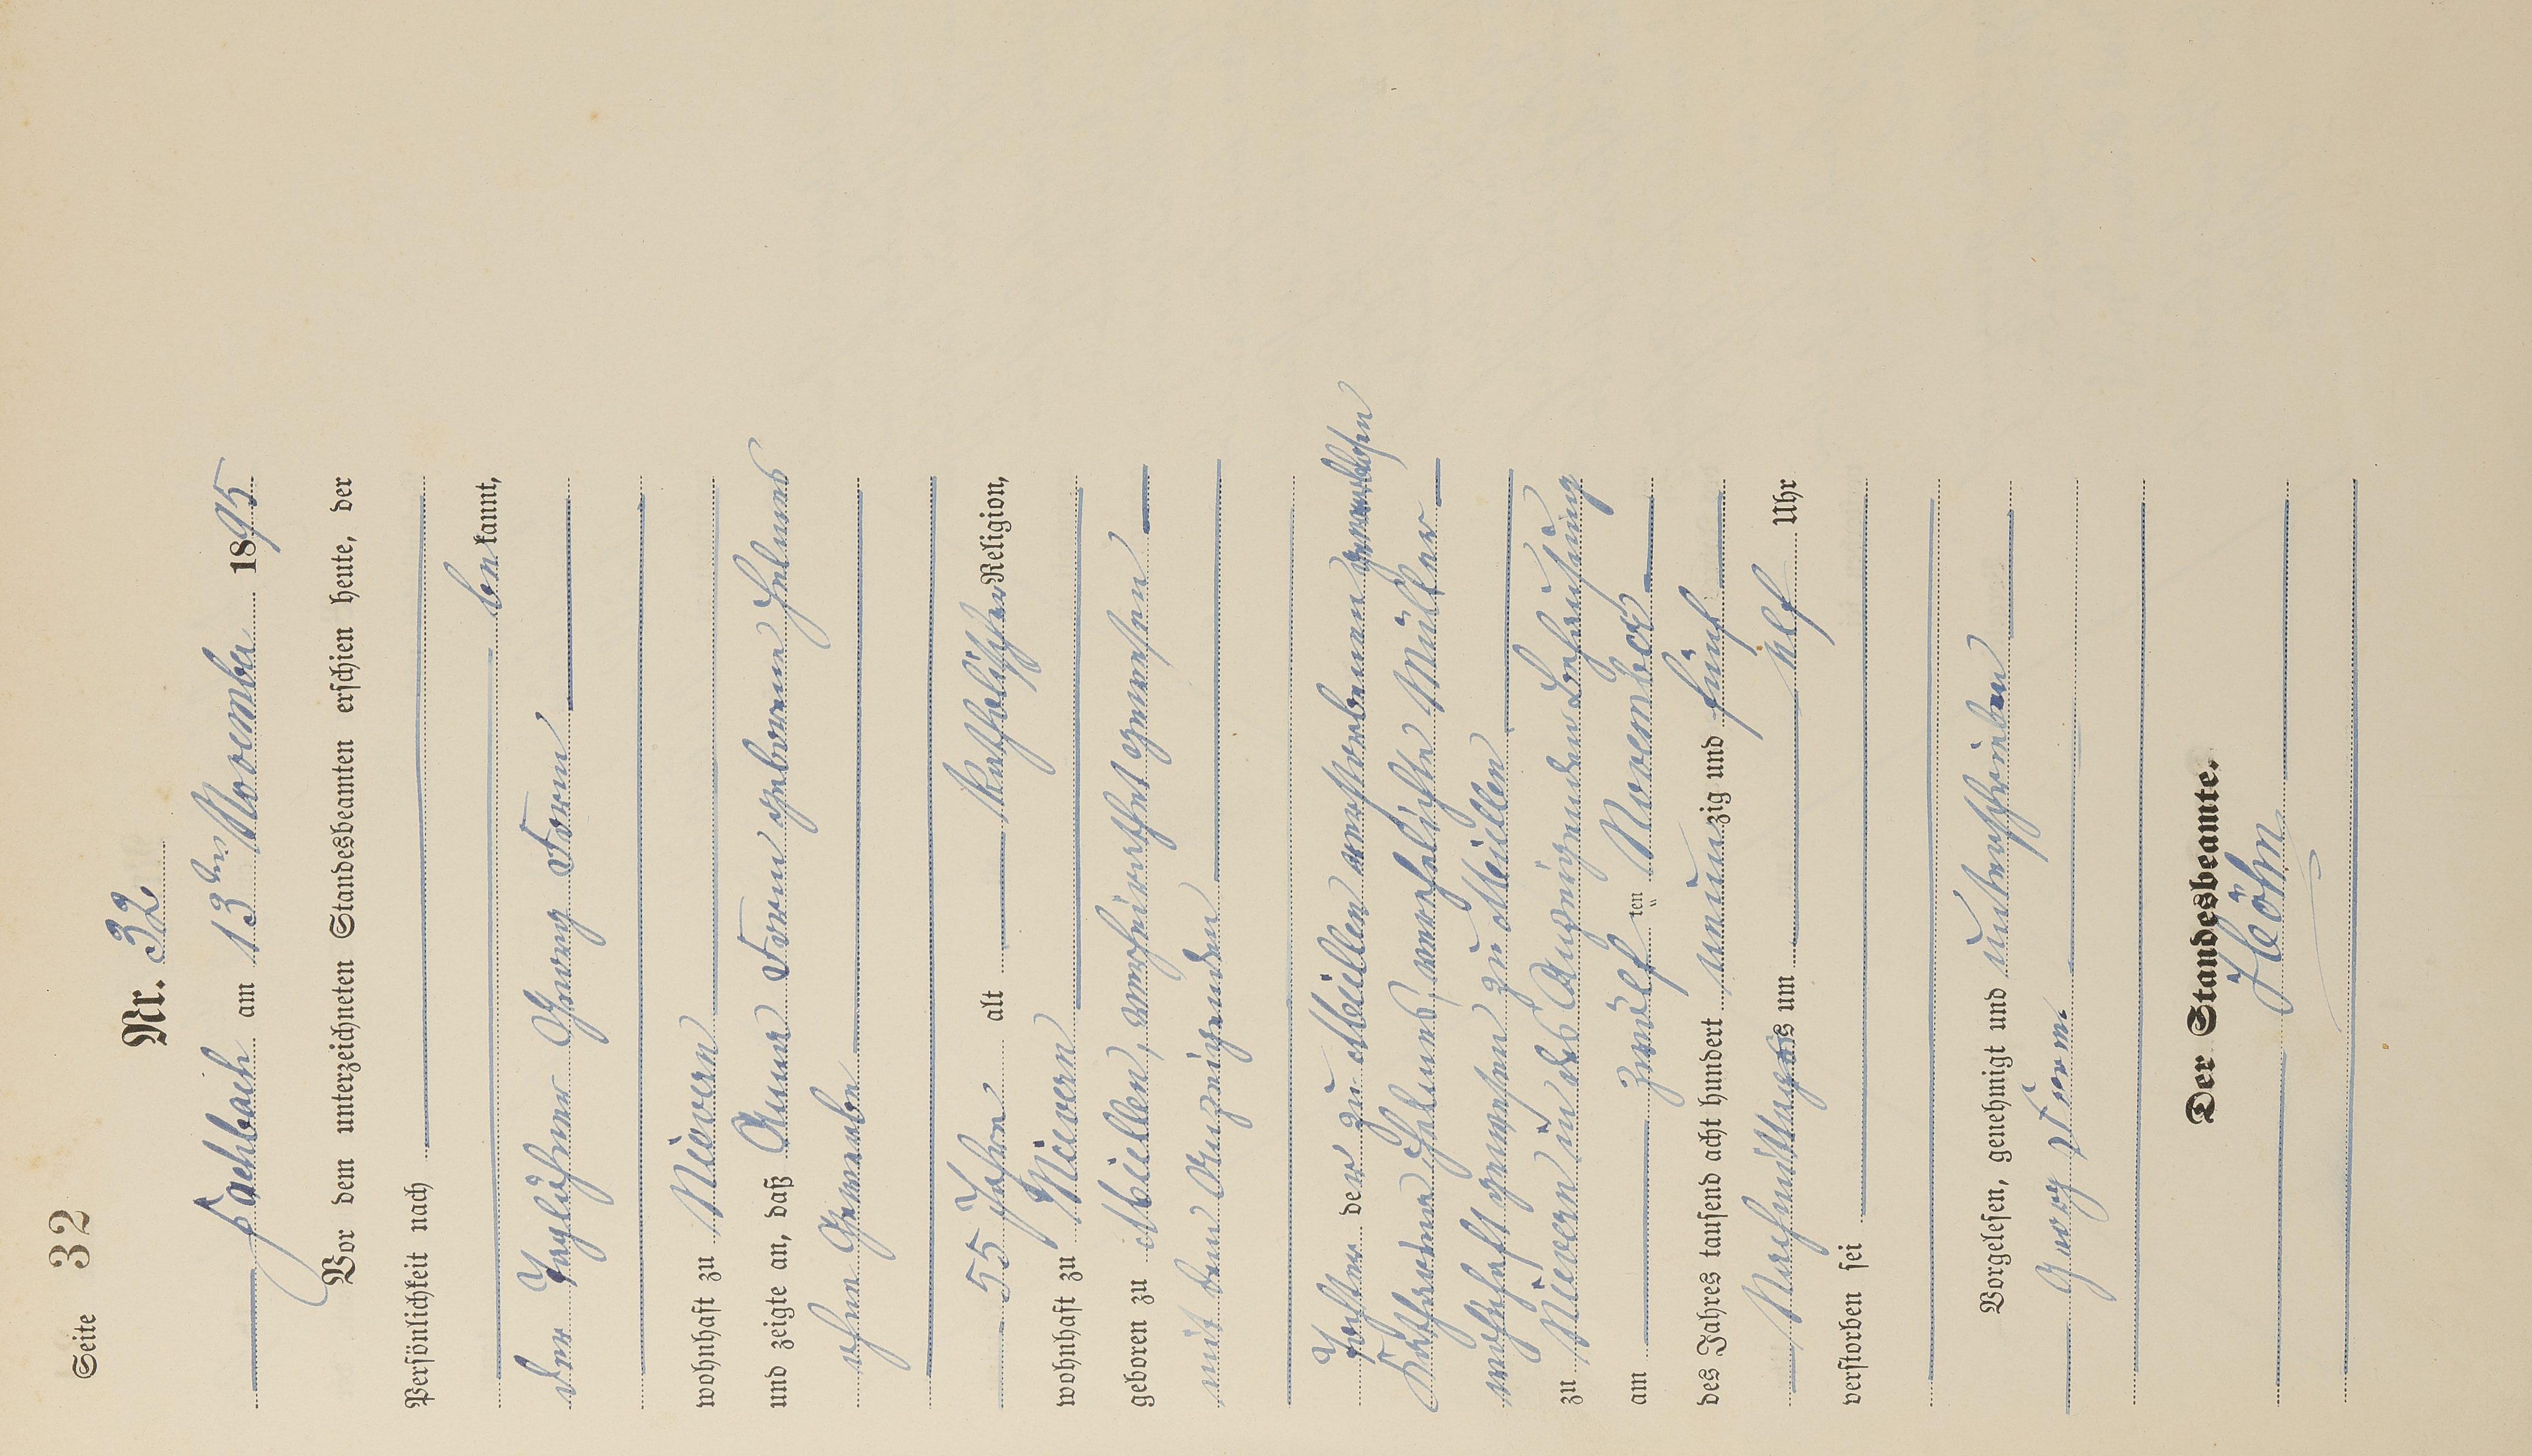 Seite 32
Nr. 32
Fachbach am 13ten November 1895
Vor dem unterzeichneten Standesbeamten erschien heute, der
Persönlichkeit nach
bekannt,
der Taglöhner Georg
wohnhaft zu Nievern
und zeigte an, daß Anna geborene
ohne Gewerbe
55 Jahre alt katholischer Religion,
wohnhaft zu Nievern
geboren zu Miellen, verheirathet gewesen
mit dem Anzeigenden
Tochter der zu Miellen verstorbenen
verehelichte Müller
wohnhaft gewesen zu Miellen
zu Nievern in des Anzeigenden Behausung
am zwölften November
des Jahres tausend acht hundert neunzig und fünf
Nachmittags um elf Uhr
verstorben sei
Vorgelesen, genehmigt und unterschrieben
Georg
Der Standesbeamte.
Höhn